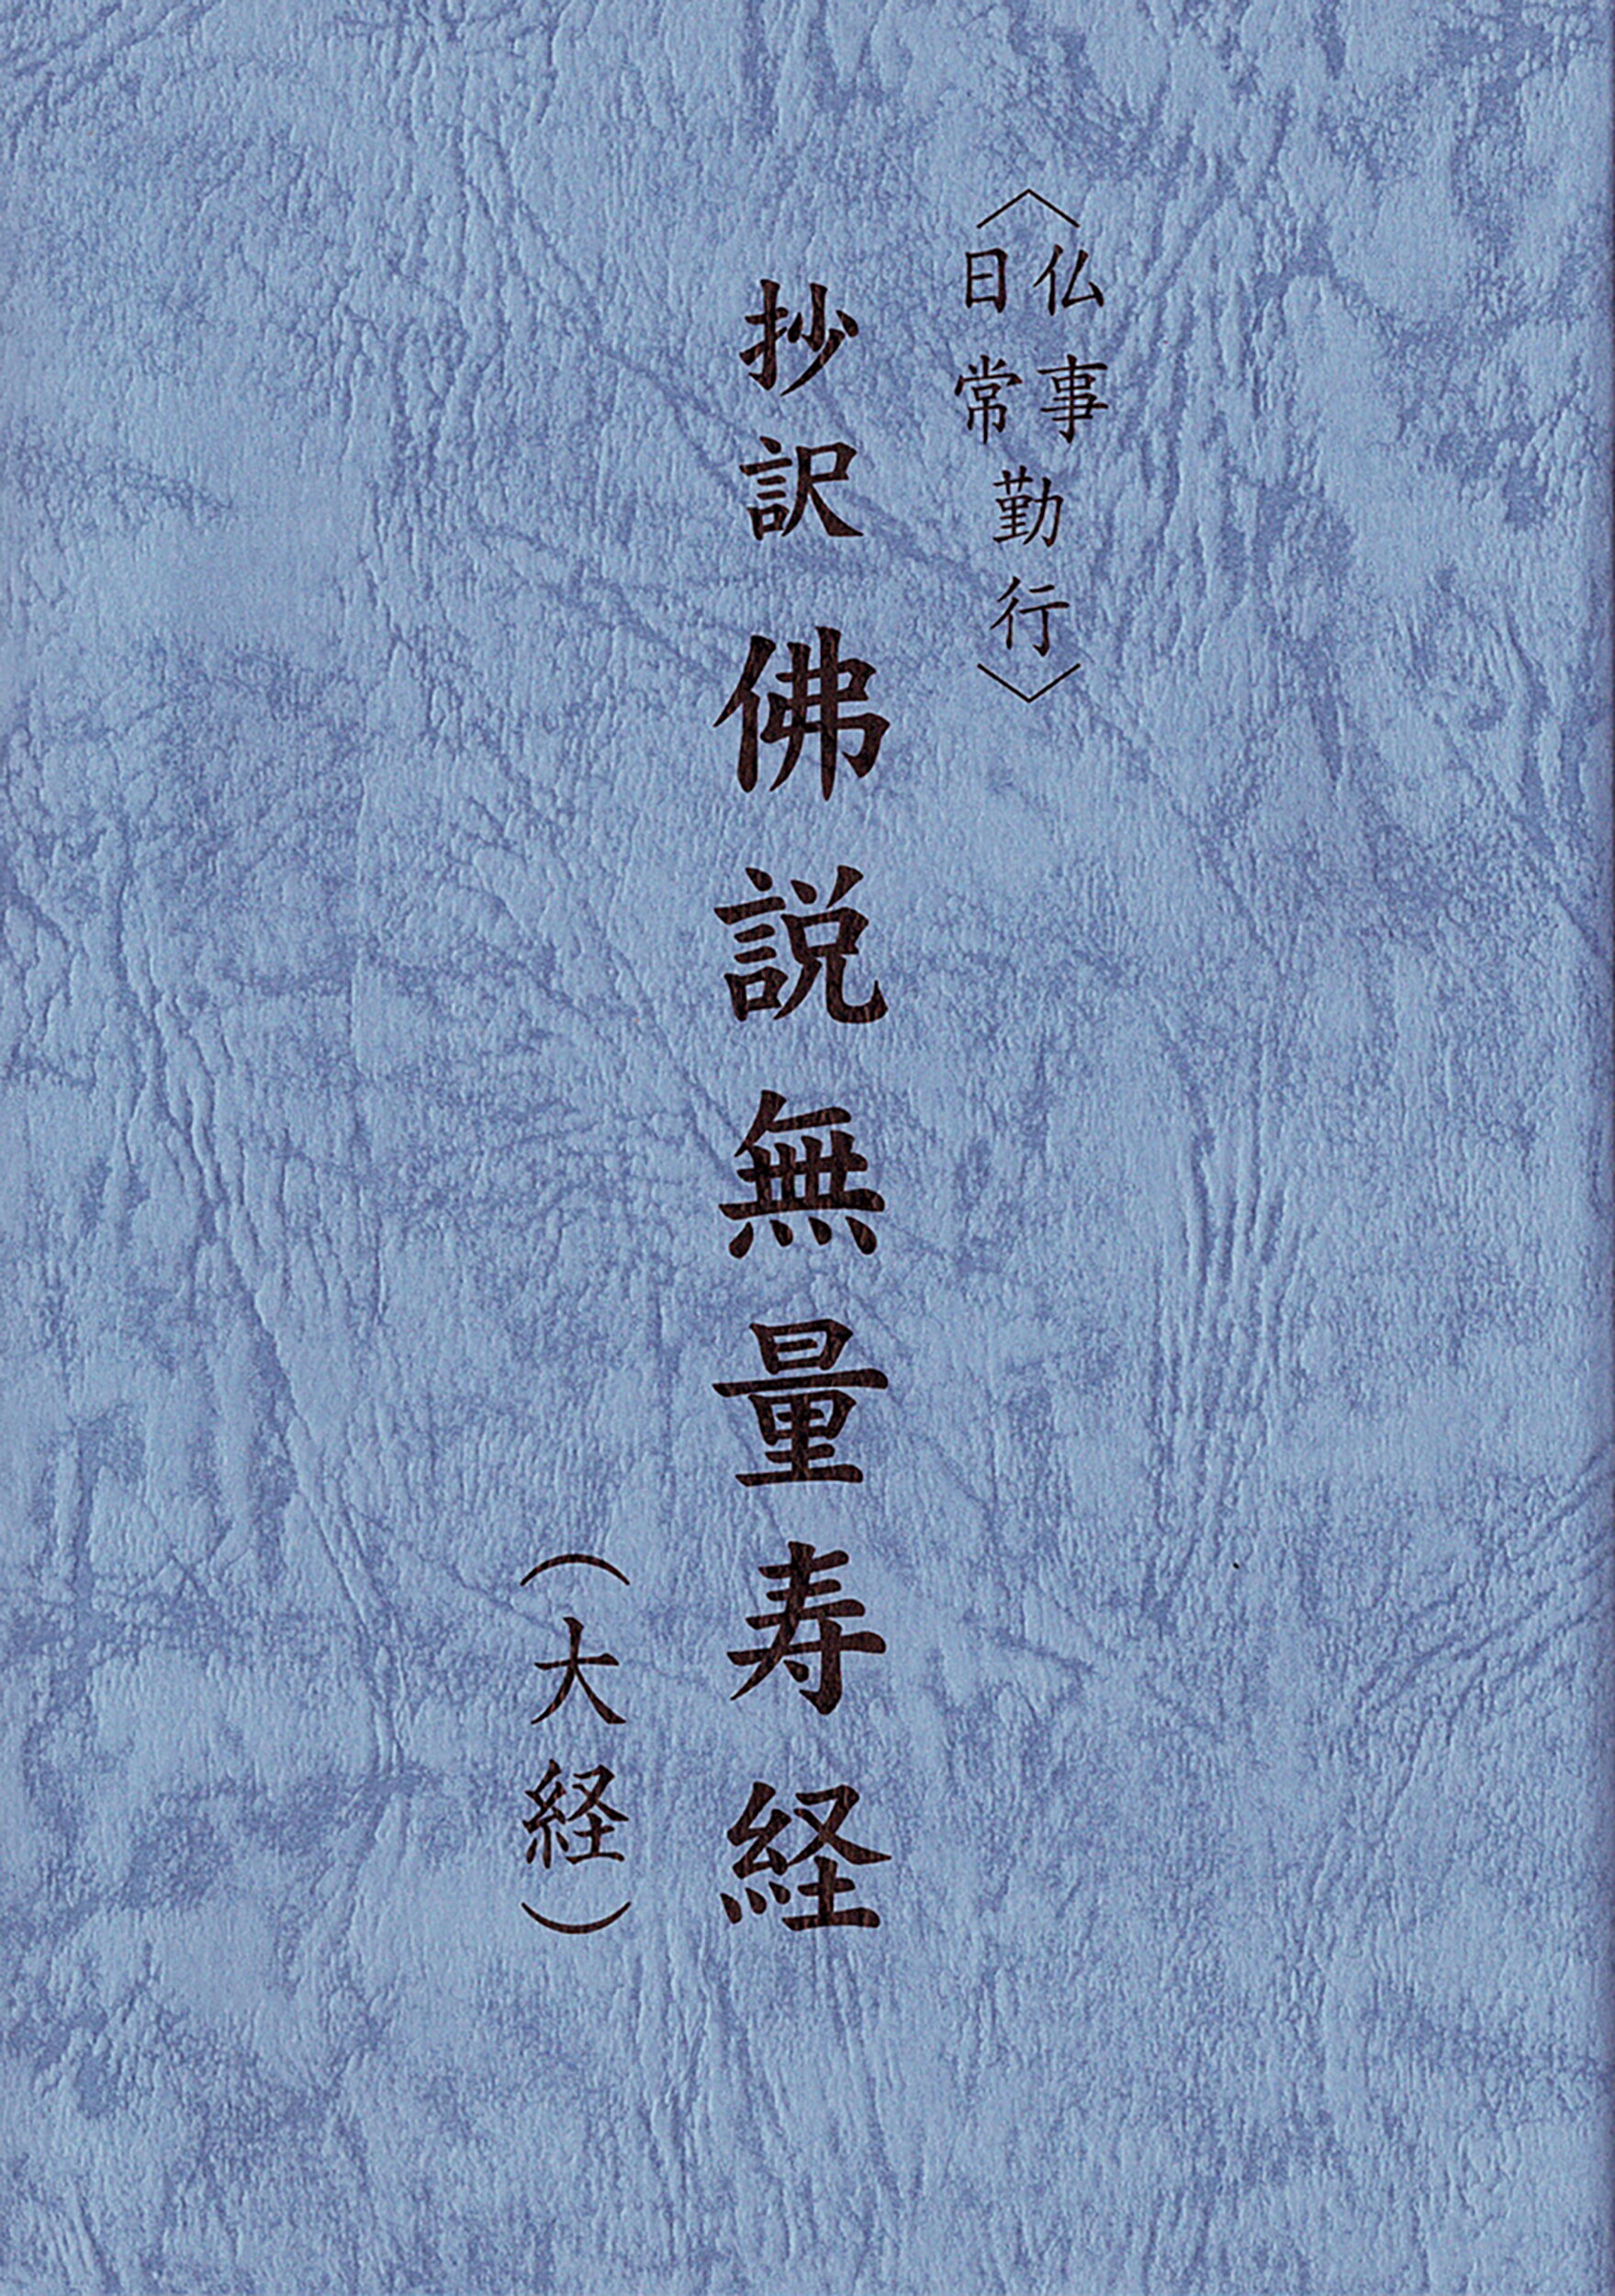 〈仏事
日常
勤行〉
抄訳 佛説無量寿経
(大経)